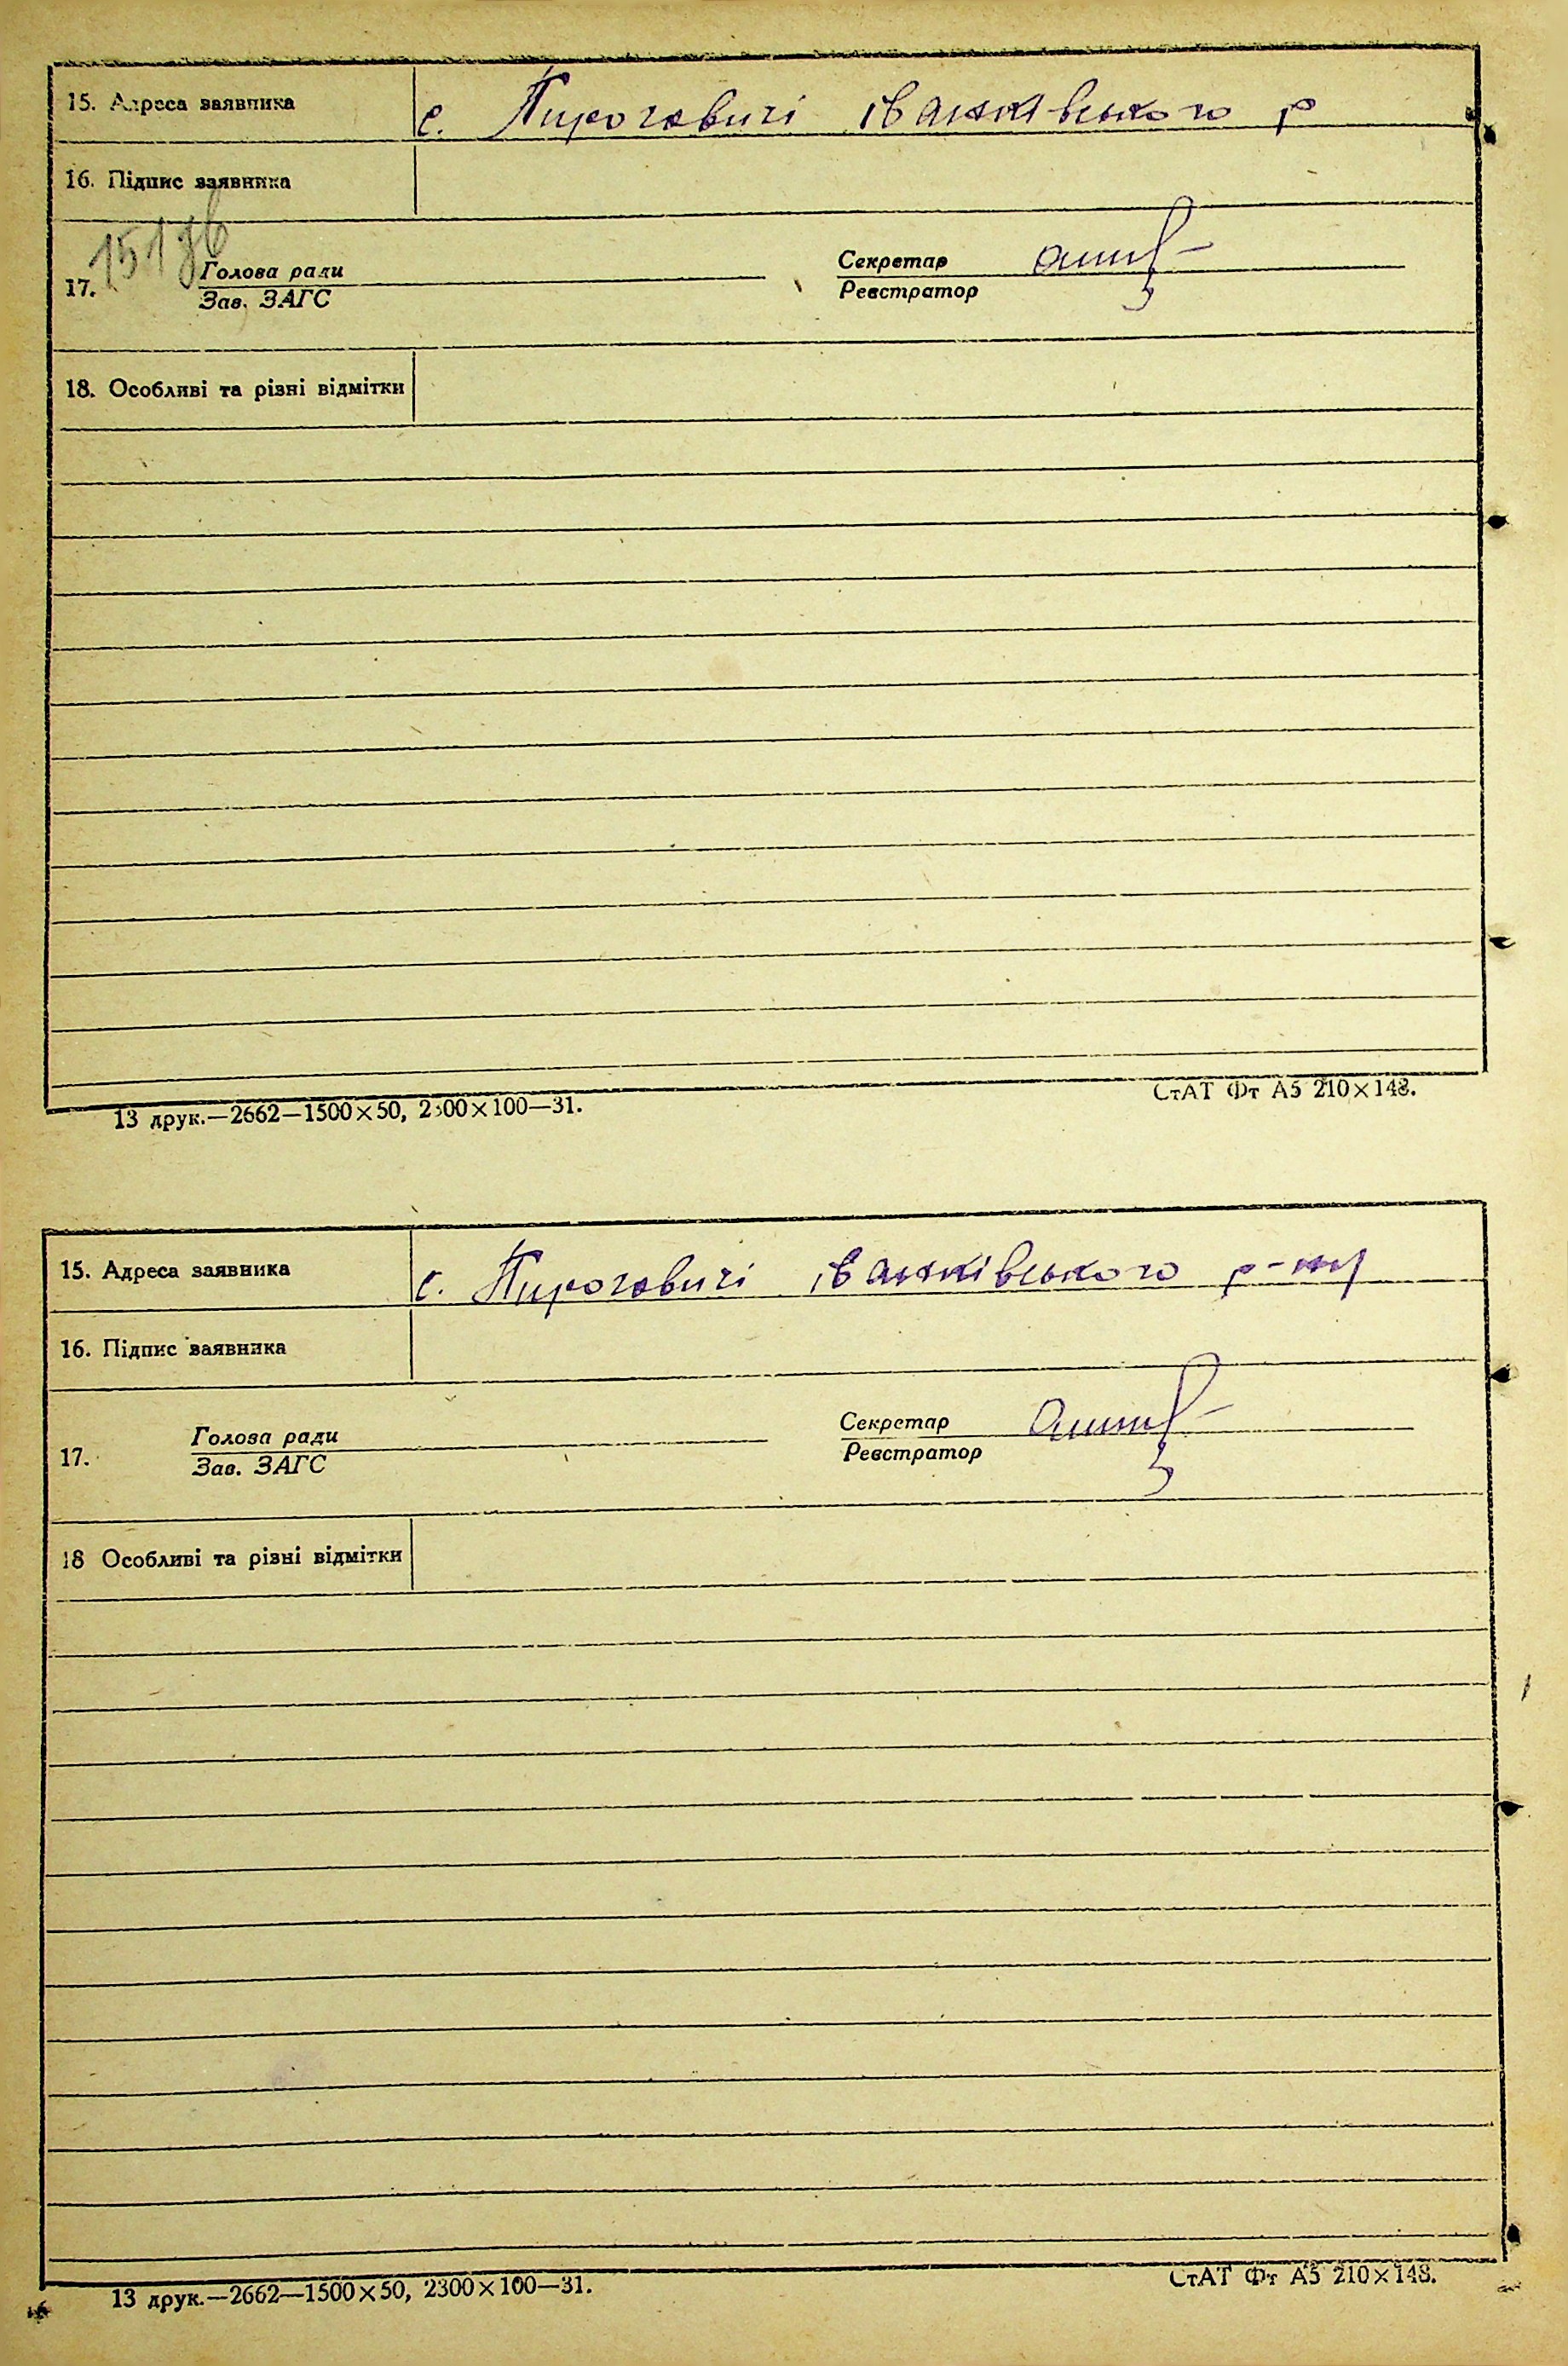 15. Адреса заявника с. Пироговичі іванківського р
16. Підпис заявника
151зв
17. Голова ради Секретар
Зав. ЗАГС Реєстратор
18. Особливі та різні відмітки
13 друк.—2662—1500×50, 2300×100—31. СтАТ Фт А5 210×148.
15. Адреса заявника с. Пироговичі іванківського р-ну
16. Підпис заявника
17. Голова ради Секретар
Зав. ЗАГС Реєстратор
18 Особливі та різні відмітки
13 друк.—2662—1500×50, 2300×100—31. СтАТ Фт А5 210×148.